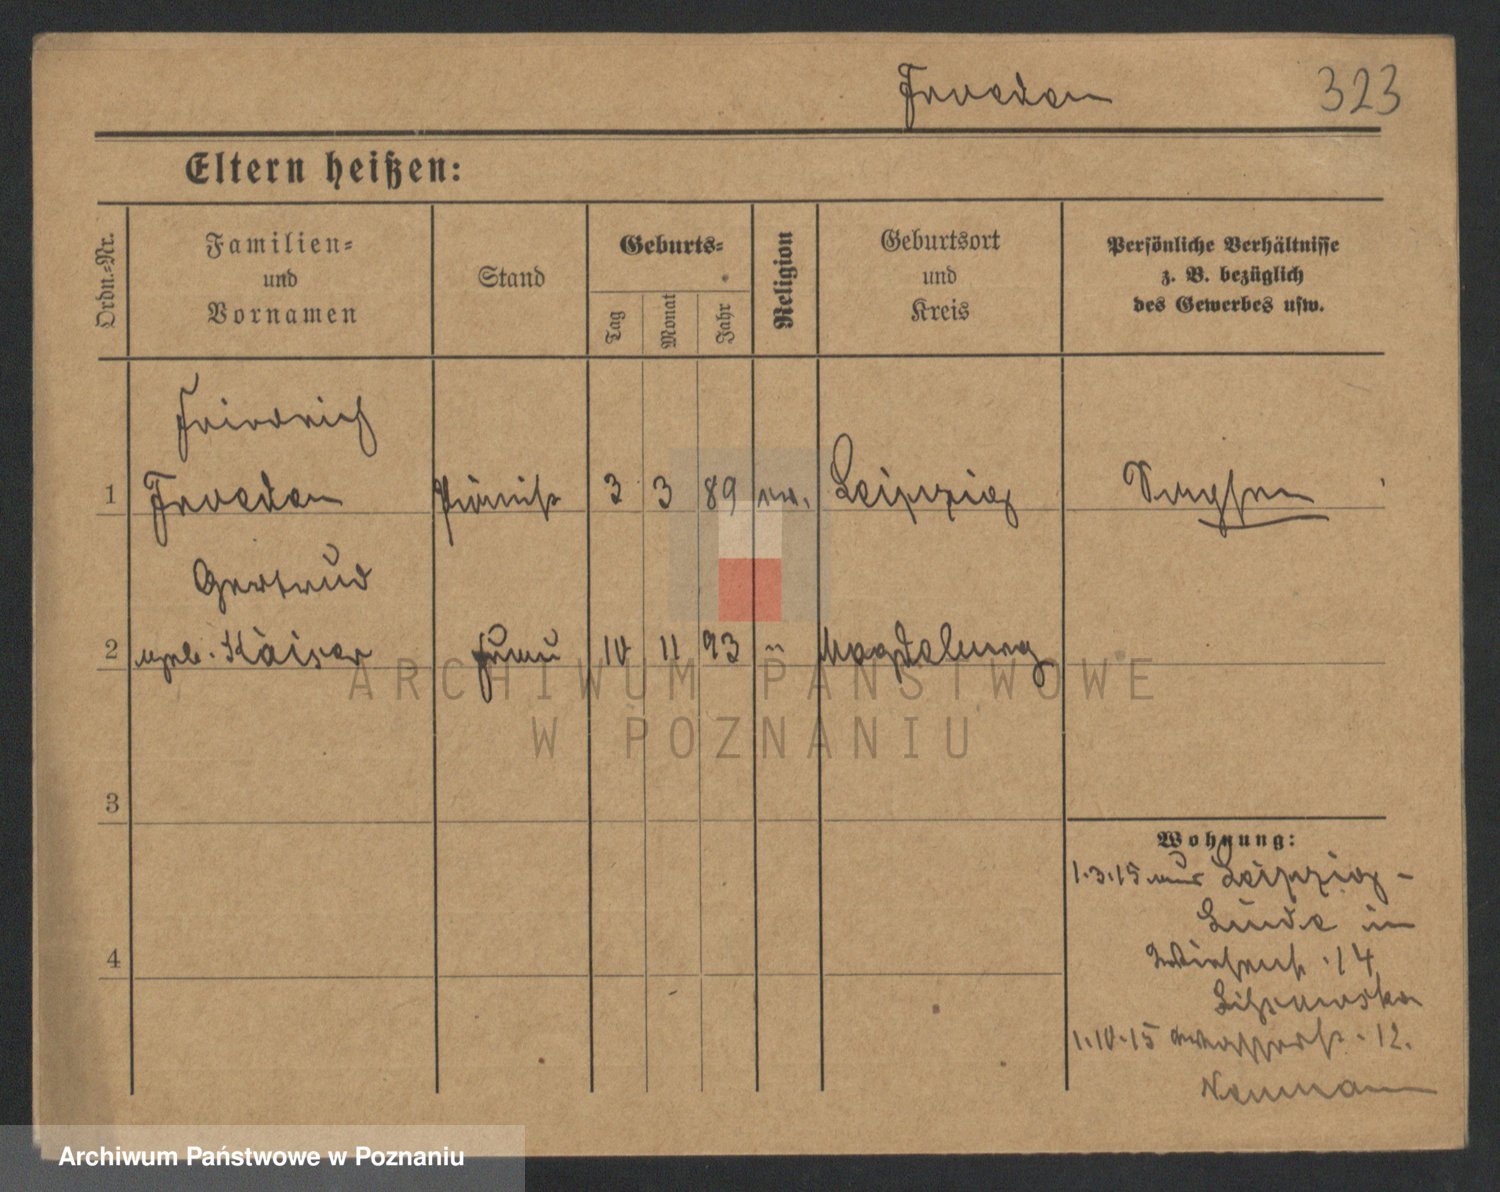 Froeden 323
Eltern heißen:
Ordn.=Nr.
Familien=
und
Vornamen
Stand
Geburts=
Tag
Monat
Jahr
Religion
Geburtsort
und
Kreis
Persönliche Verhältnisse
z. B. bezüglich
des Gewerbes usw.
Friedrich
1 Froeden Pianist 3 3 89 ev. Leipzig Sachsen
Gertrud
2 geb. Kaiser Frau 10 11 93 " Magdeburg
3
4
Wohnung:
1.3.15 aus Leipzig-
in
14
1.10.15 Wasserstr. 12.
Neumann
ARCHIWUM PAŃSTWOWE
W POZNANIU
Archiwum Państwowe w Poznaniu